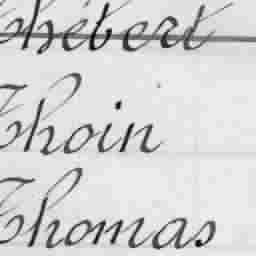 Thébert
Thoin
Thomas